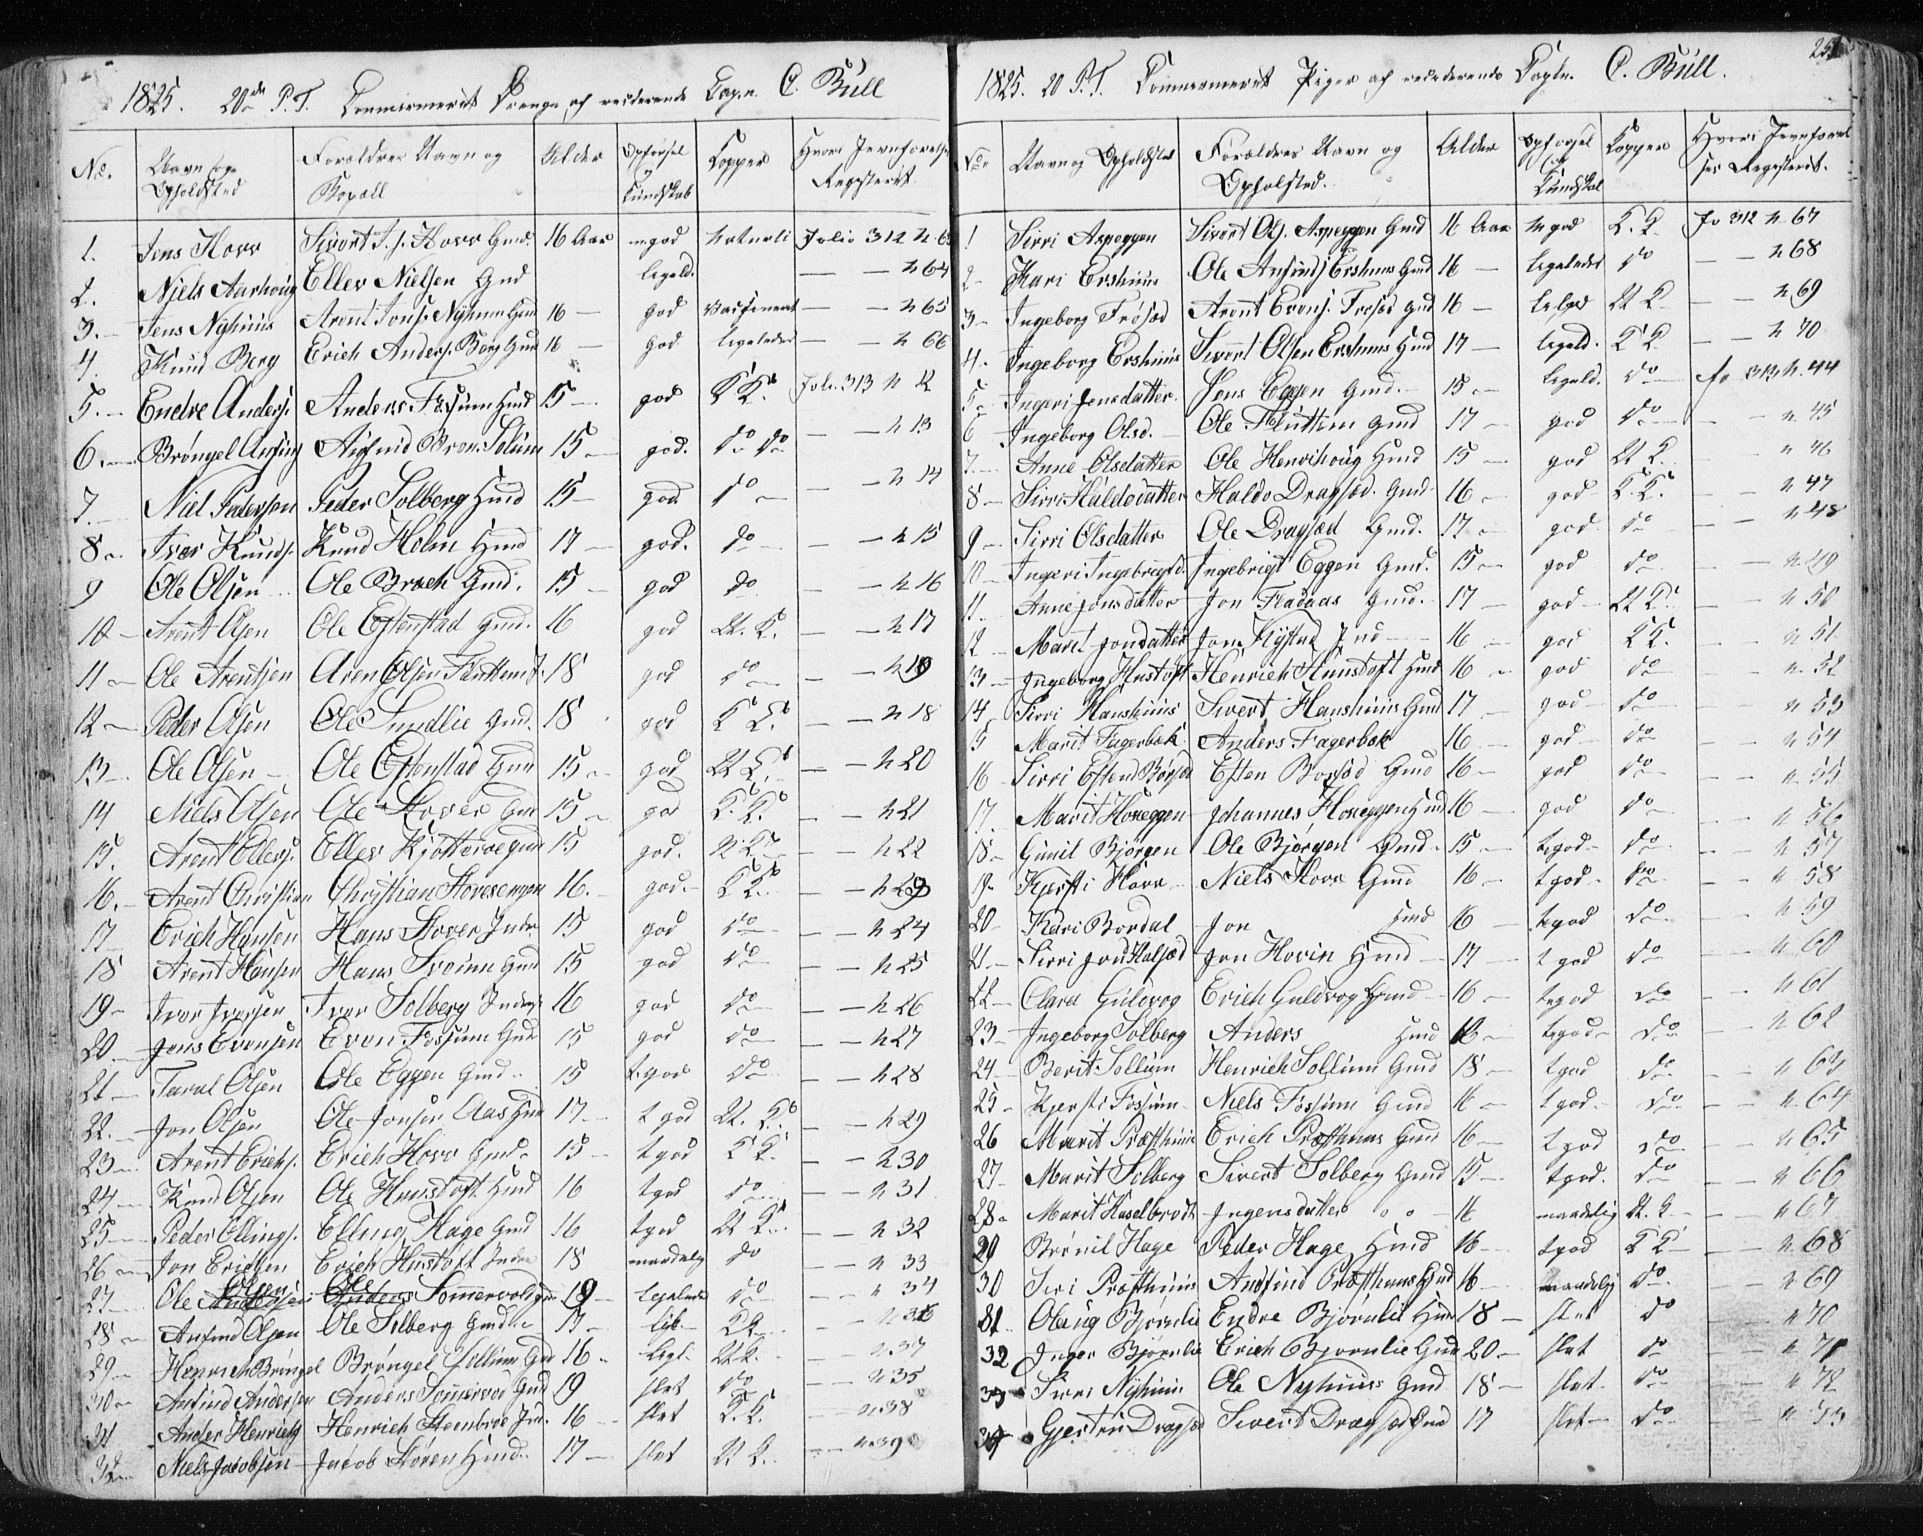 1825. 20de P. T. Confirmerede Drenge af residerende Capn. C. Büll
No. Navn og Opholdsted Forældres Navn og Bopæll Alder Opførsel og Kundskab Kopper Hvori Jevnførelses Registeret
1. Jens Horr Sivert J. s. Horr Gmd. 16 Aar mgod naturli Folio 312 N. 63
2. Niels Aarhoug Eller Nielsen Gmd ligeld. — — N 64
3. Jens Nyhuus Arent Jons. Nyhuus Gmd 16 — god vaksineret — — N 65
4. Knud Berg Erich Anders. Berg Gmd 16 — god ligeledes — — N 66
5. Endre Anders. Anders Fossum Hmd 15 — god K K. Fole. 313 N 12
6. Brøngel Anfins Anfind Bron. Solum 15 — god. do do — — N 13
7. Niel Pedersen Peder Solberg Hmd 15 — god do — — N 14
8 Iver Knuds. Knud Holm Hmd 17 — god. do — — N 15
9 Ole Olsen Ole Broch Gmd. 15 — god do — — N 16
10 Arent Olsen Ole Estenstad Gmd. 16 god U. K. — — N 17
11 Ole Arentsen Aren Olsen Fluttum 18 god do — — N 19
12 Peder Olsen Ole Sundlie Gmd. 18 god K K. — — N 18
13 Ole Olsen Ole Estenstad Gmd 15 god U K. — — N 20
14 Niels Olsen Ole Horer Gmd 15 god K. K. — — N 21
15. Arent Ellers. Eller Kjøtterøe Gmd 15 god. U K. — — N 22
16. Arent Christian Christian 16. god. K K. — — N 23
17 Erich Hansen Hans Horer Inder 15 god do — — N 24
18 Arent Hansen Hans Gmd 15 god do — — N 25
19 Iver Iversen Iver Solberg Inders 16 god do — — N 26
20. Jens Evensen Even Fossum Gmd 15 god do — — N 27
21 Taral Olsen Ole Eggen Gmd. 15 t god do — — N 28
22. Jon Olsen Ole Jonsen Aas Hmd 17 t god U. K. — — N 29
23 Arent Erichs. Erich Horr Gmd. 15 t god K K. — — N 30
24 Knud Olsen Ole Hunstoft Hmd 16 t god do — — N 31
25 Peder Ellings. Elling Hage Gmd 16 t god U K. — — N 32
26 Jon Ericsen Erich Hustoft Inder 18 maadelig do — — N 33
27 Ole Olsen Andersen Ole Anders Sommervold Gmd 19 ligeledes do — — N 34
28 Anfind Olsen Ole Solberg Gmd 17 lik K K. — — N 36
29 Henrich Brøngel Brøngel Sollum Gmd 16 ligl. U K. — — N 37
30 Anfind Andersen Anders Sommervod Gmd 19 slet do — — N 35
31 Ander Henrichs Henrich Steenbroe Ind. 16 slet K. K. — — N 38
32 Niels Jacobsen Jacob Støren Hmd. 17 slet U K. — — N 39
251
1825. 20 P. T. Confirmerede Piger af residerende Capln. C. Büll.
No. Navn og Opholdsted Forældres Navn og Opholsted. Alder Opførsel og Kundskab Kopper Hvori Jevnførelses Registeret.
1 Sirri Aspeggen Sivert Ols. Aspeggen Gmd 16 Aar m god K. K. Fo 312 N 67
2 Kari Ershuus Ole Anfinds. Ershuus Gmd 16 — ligeledes do — — N 68
3 Ingeborg Frøsed Arent Evens. Frøsed Gmd 16 — ligeled U K — — N 69
4. Ingeborg Ershuus Sivert Olsen Ershuus Hmd 17 — ligeld. K K. — — N 70
5 Ingeri Jonsdatter Jens Eggen Gmd. 15 — ligeld. do Fo 313 N. 44
6 Ingeborg Olsd. Ole Fluttum Gmd 17 god do — — N 45
7. Anne Olsdatter Ole Henrihoug Hmd 15 — god U K. N 46
8 Sirri Haldodatter Haldo Dragsed. Gmd. 16 god K. K. — — N 47
9 Sirri Olsdatter Ole Dragsed Gmd. 17 god do — — N 48
10 Ingeri Ingebrigtsd. Ingebrigt Eggen Gmd. 15 god do — N 49
11. Anne Jonsdatter Jon Fladaas Gmd. 17 god U K. — N 50
12 Marit Jondatter Jon 16 god K K. — N 51
13 Ingeborg Hustoft Henrich Hunstoft Hmd 16 god do — N 52
14 Sirri Hanshuus Sivert Hanshuus Gmd 17 god do N 53
15 Marit Fagerbok Anders Fagerbok 16 god do — N 54
16 Sirri Estend Børsed Esten Borsed Gmd 16 god do — N 55
17. Marit Honeggen Johannes Honeggen Hmd 16 god do N 56
18 Gunil Bjorgen Ole Bjørgen Gmd. 15 tgod do — N 57
19 Kjersti Horr Niels Horr Gmd 16 t god do — N 58
20 Kari Bordal Jon Hmd 16 tgod do — N 59
21 Sirri Jond Jon Horin Hmd 17 t god do — N 60
22 Clara Guldvog Erich Guldvog Hmd 16 tgod do — N 61
23 Ingeborg Solberg Anders Hmd tgod do — N 62
24 Berit Sollum Henrich Sollum Gmd 18 tgod do — N 63
25 Kjersti Fossum Niels Fossum Gmd 16 t god do — N 64
26 Marit Præsthuus Erich Præsthuus Gmd 16 t god do — N 65
27 Marit Solberg Sivert Solberg Gmd 15 tgod. do — N 66
28 Marit Haselbrodt Ingensdatter o o 16 maadelig U. K — N 67
29 Brønil Hage Peder Hage Hmd 16 tgod K K — N 68
30 Siri Præsthuus Andfind Præsthuus Gmd 16 maadelig do — N 69
31 Olaug Bjørnlie Endre Bjørnlie Hmd 18 slet do — N 70
32 Inger Bjørnlie Erich Bjornlie Gmd 20 slet do — N 71
33 Sirri Nyhuus Ole Nyhuus Gmd 18 slet do — N 72
34 Gjertru Dragsed Sivert Dragsed Gmd 17 slet do — N 73